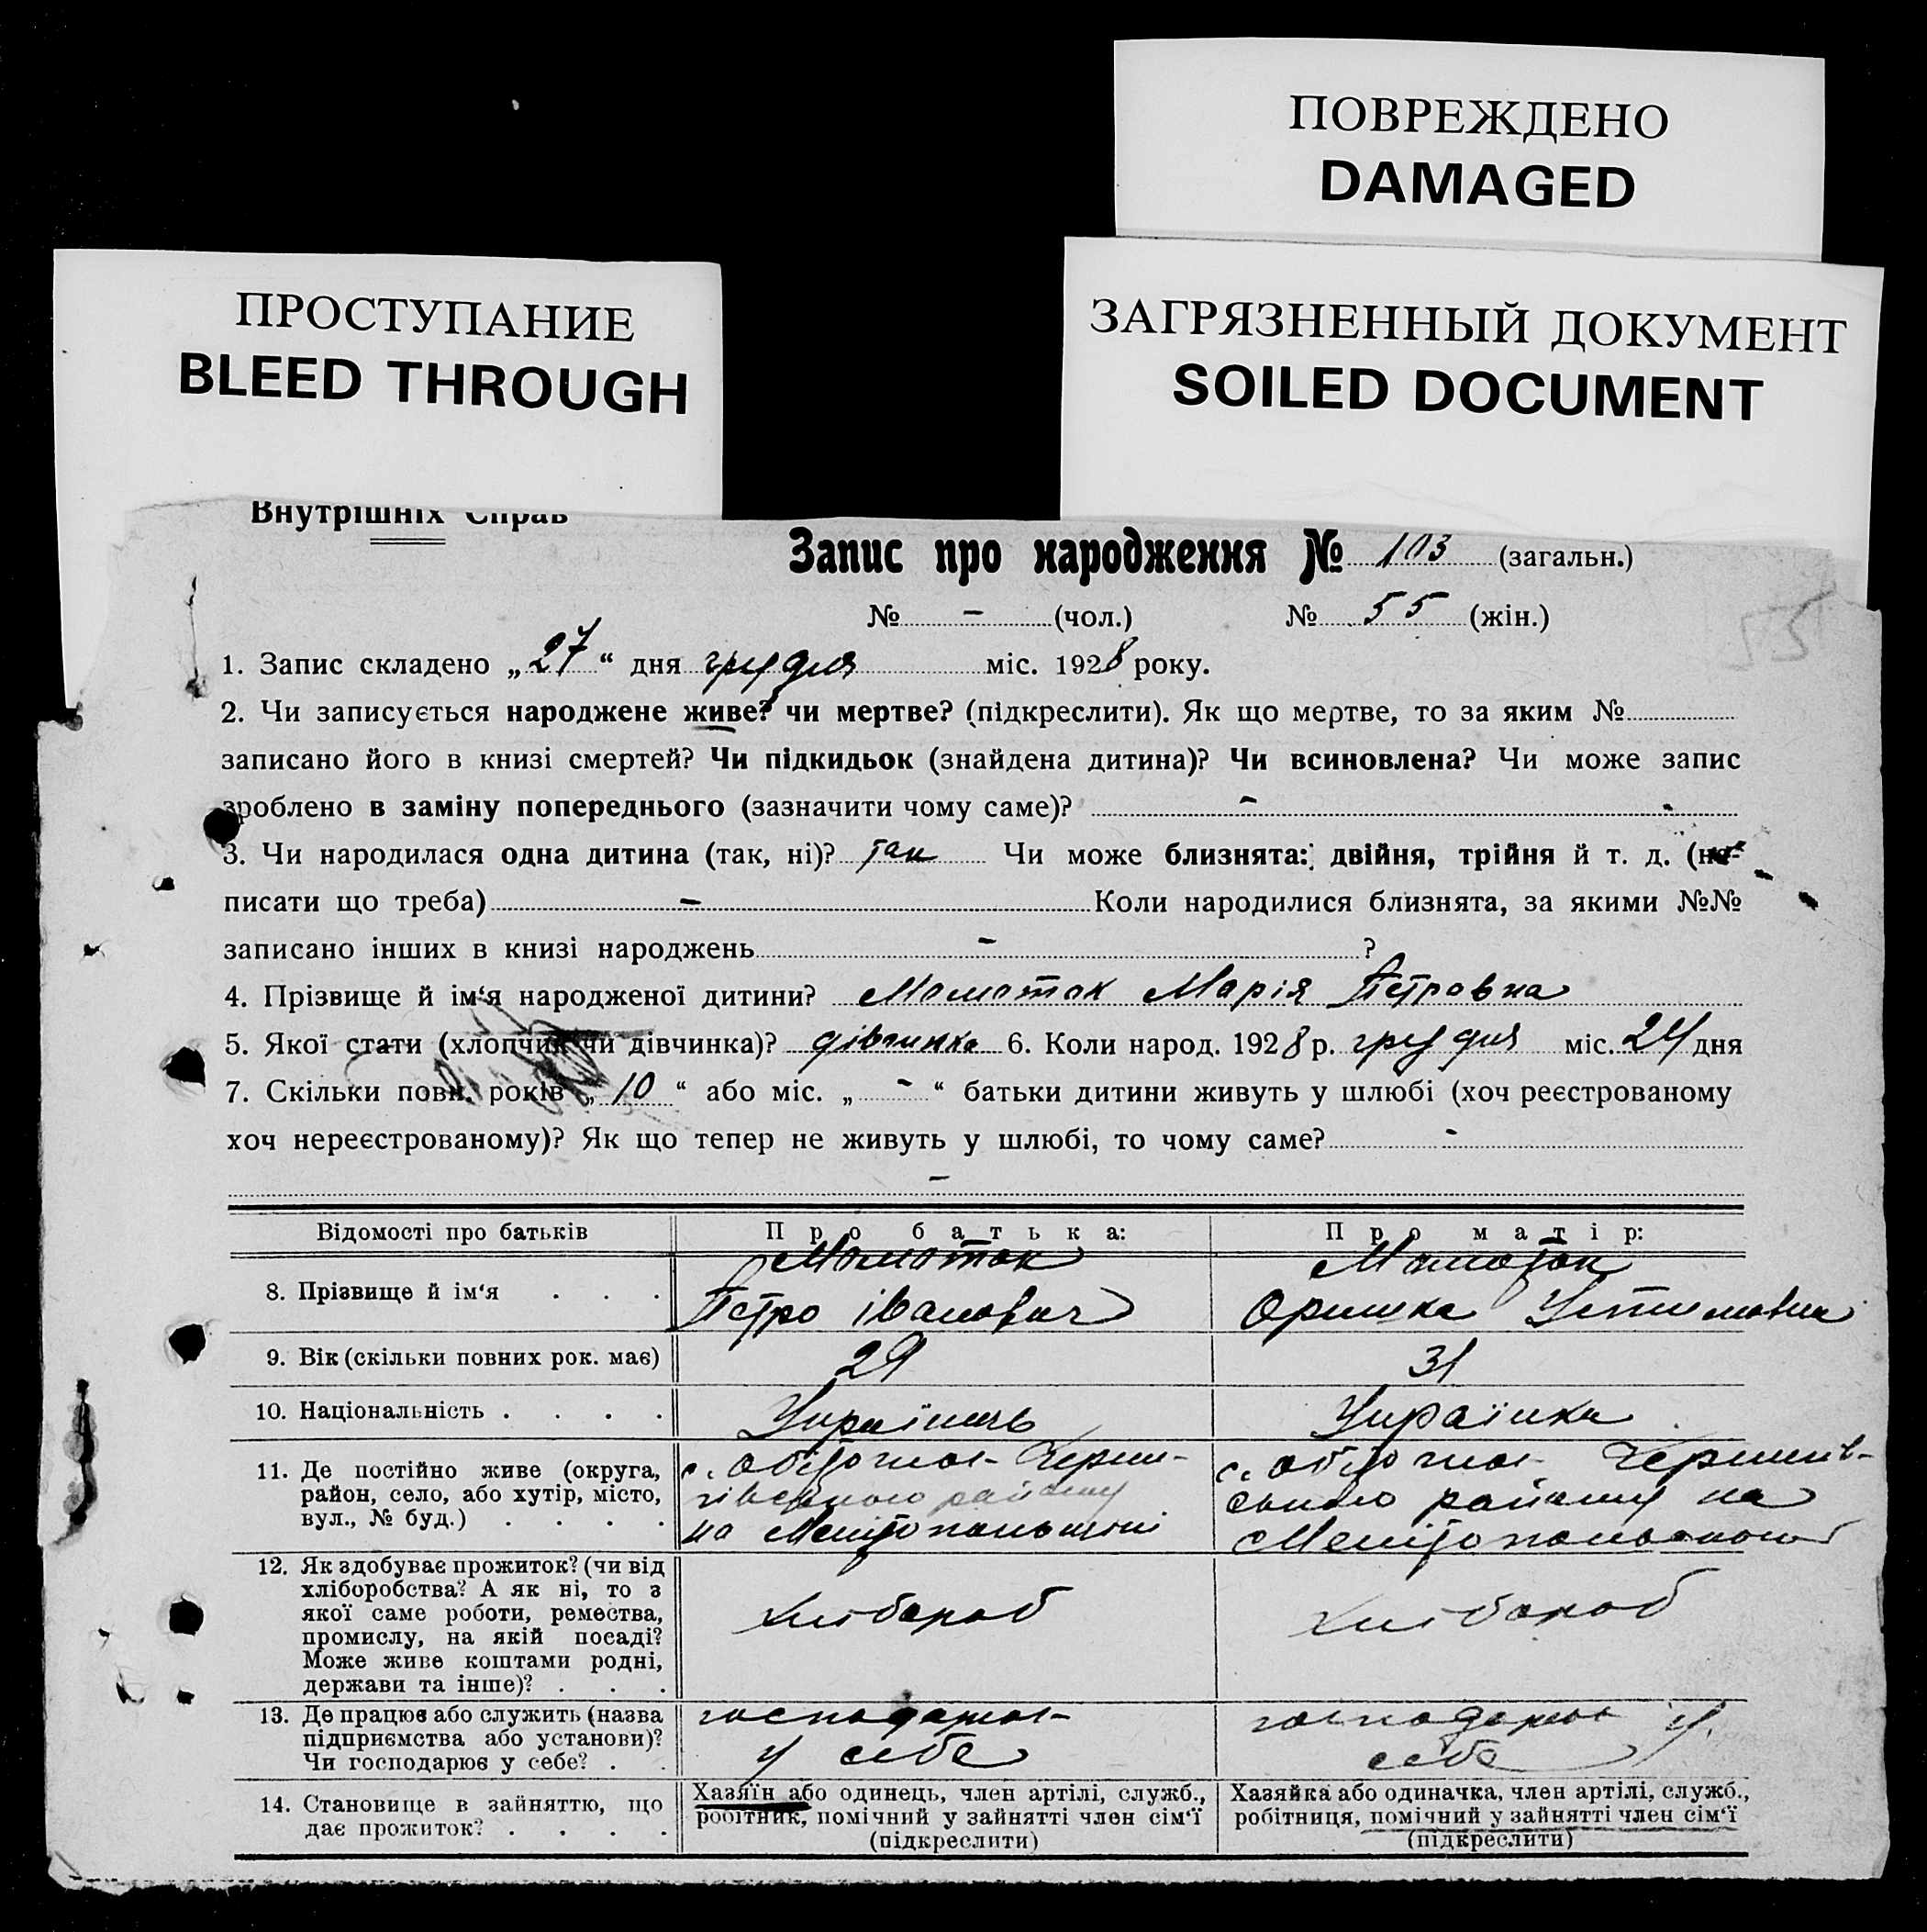 ПОВРЕЖДЕНО
DAMAGED
ПРОСТУПАНИЕ
BLEED THROUGH
ЗАГРЯЗНЕННЫЙ ДОКУМЕНТ
SOILED DOCUMENT
Внутрішніх Справ
Запис про народження № 103 (загальн.)
№ - (чол.) № 55 (жін.)
1. Запис складено „27“ дня грудня міс. 1928 року.
2. Чи записується народжене живе? чи мертве? (підкреслити). Як що мертве, то за яким №
записано його в книзі смертей? Чи підкидьок (знайдена дитина)? Чи всиновлена? Чи може запис
зроблено в заміну попереднього (зазначити чому саме)? - -
3. Чи народилася одна дитина (так, ні)? так Чи може близнята: двійня, трійня й т. д. (на-
писати що треба) - Коли народилися близнята, за якими №№
записано інших в книзі народжень - ?
4. Прізвище й ім‘я народженої дитини? Маматок Марія Петровна
5. Якої стати (хлопчик чи дівчинка)? дівчинка 6. Коли народ. 1928 р. грудня міс. 24 дня
7. Скільки повн. років „10“ або міс. „-“ батьки дитини живуть у шлюбі (хоч реєстрованому
хоч нереєстрованому)? Як що тепер не живуть у шлюбі, то чому саме? -
-
Відомості про батьків Про батька: Про матір:
8. Прізвище й ім‘я . . . Маматок
Петро Іванович
Маматок
Оришка Устимовна
9. Вік (скільки повних рок. має) 29 31
10. Національність . . . . Українець Українка
11. Де постійно живе (округа,
район, село, або хутір, місто,
вул., № буд.) . . . .
с. Обіточне Черни-
гівського району
на Мелітопольщині
с. Обіточне Чернигів-
ського району на
12. Як здобуває прожиток? (чи від
хліборобства? А як ні, то з
якої саме роботи, ремества,
промислу, на якій посаді?
Може живе коштами родні,
держави та інше)? . . .
хлібороб
хлібороб
13. Де працює або служить (назва
підприємства або установи)?
Чи господарює у себе? . .
господарює
у себе
господарює у
себе
14. Становище в зайняттю, що
дає прожиток? . . . .
Хазяїн або одинець, член артілі, служб.,
робітник, помічний у зайнятті член сім‘ї
(підкреслити)
Хазяйка або одиначка, член артілі, служб.,
робітниця, помічний у зайнятті член сім‘ї
(підкреслити)